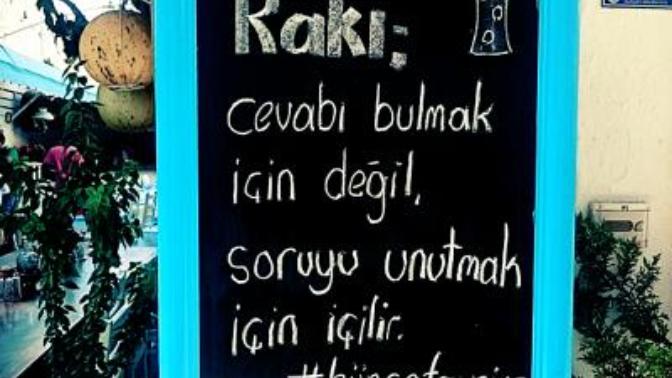 Rakı;
cevabı bulmak
için değil,
soruyu unutmak
için içilir.